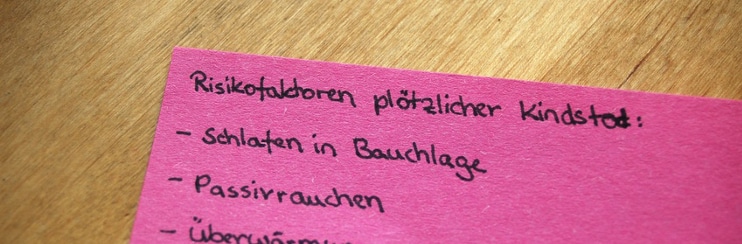 Risikofaktoren plötzlicher Kindstod:
- Schlafen in Bauchlage
- Passivrauchen
-